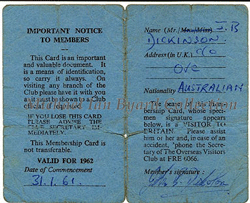 IMPORTANT NOTICE
TO MEMBERS
This Card is an important
and valuable document. It
is a means of identification,
so carry it always. On
visiting any branch of the
Club please have it with you
as it must be shown.
IF YOU LOSE THIS CARD
PLEASE ADVISE THE
CLUB SECRETARY IM-
MEDIATELY.
This Membership Card is
not transferable.
VALID FOR 1962
Date of Commencement
31.1.61.
Name (Mr
DICKINSON
Address (in U.K.)
Nationality AUSTRALIAN
The owner of this Mem-
bership Card, whose speci-
men signature appears
below, is a VISITOR TO
BRITAIN. Please assist
him or her and, in case of an
accident, 'phone the Secre-
tary of The Overseas Visitors
Club at FRE 6066.
Member's signature: